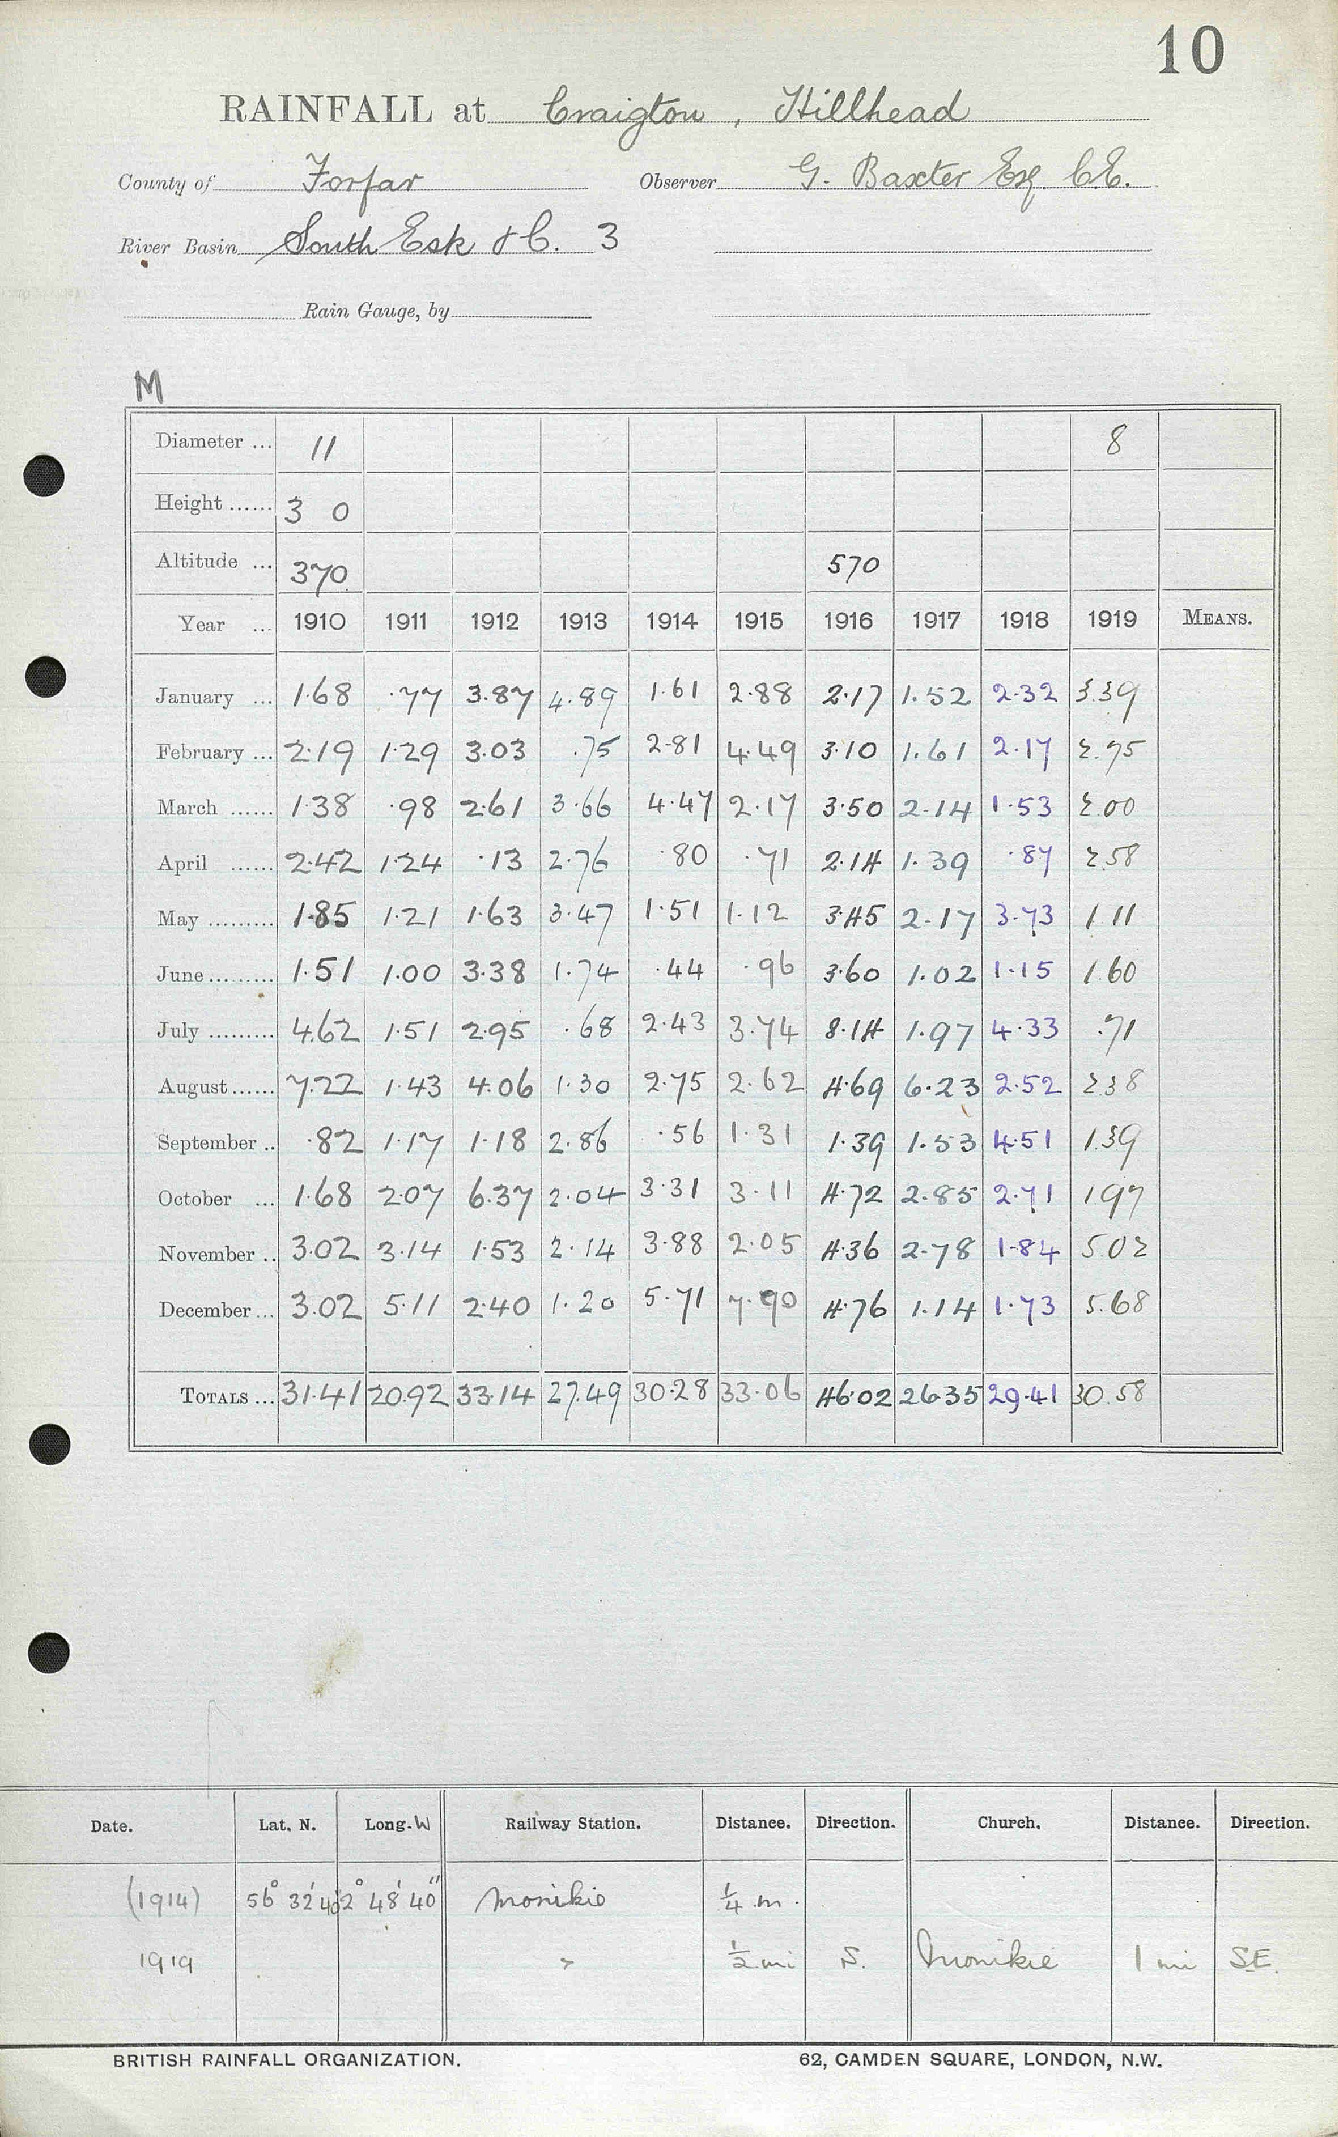 10
RAINFALL at Craigton, Hillhead
County of Forfar Observer G. Baxter Esq C.E.
River Basin South Esk &C. 3
Rain Gauge, by
M
Diameter ... 11 8
Height ...... 3 0
Altitude ... 370 570
Year ... 1910 1911 1912 1913 1914 1915 1916 1917 1918 1919 MEANS.
January ... 1.68 .77 3.87 4.89 1.61 2.88 2.17 1.52 2.32 3.39
February ... 2.19 1.29 3.03 .75 2.81 4.49 3.10 1.61 2.17 2.75
March ...... 1.38 .98 2.61 3.66 4.47 2.17 3.50 2.14 1.53 2.00
April ...... 2.42 1.24 .13 2.76 .80 .71 2.14 1.39 .87 2.58
May ......... 1.85 1.21 1.63 3.47 1.51 1.12 3.45 2.17 3.73 1.11
June ......... 1.51 1.00 3.38 1.74 .44 .96 3.60 1.02 1.15 1.60
July ......... 4.62 1.51 2.95 .68 2.43 3.74 8.14 1.97 4.33 .71
August ...... 7.22 1.43 4.06 1.30 2.75 2.62 4.69 6.23 2.52 2.38
September .. .82 1.17 1.18 2.86 .56 1.31 1.39 1.53 4.51 1.39
October ... 1.68 2.07 6.37 2.04 3.31 3.11 4.72 2.85 2.71 1.97
November .. 3.02 3.14 1.53 2.14 3.88 2.05 4.36 2.78 1.84 5.02
December ... 3.02 5.11 2.40 1.20 5.71 7.90 4.76 1.14 1.73 5.68
TOTALS ... 31.41 20.92 33.14 27.49 30.28 33.06 46.02 26.35 29.41 30.58
Date. Lat. N. Long. W Railway Station. Distance. Direction. Church. Distance. Direction.
(1914) 56° 32' 40 2° 48' 40" Monikie ¼ m.
1919 " ½ mi S. Monikie 1 mi S.E.
BRITISH RAINFALL ORGANIZATION. 62, CAMDEN SQUARE, LONDON, N.W.